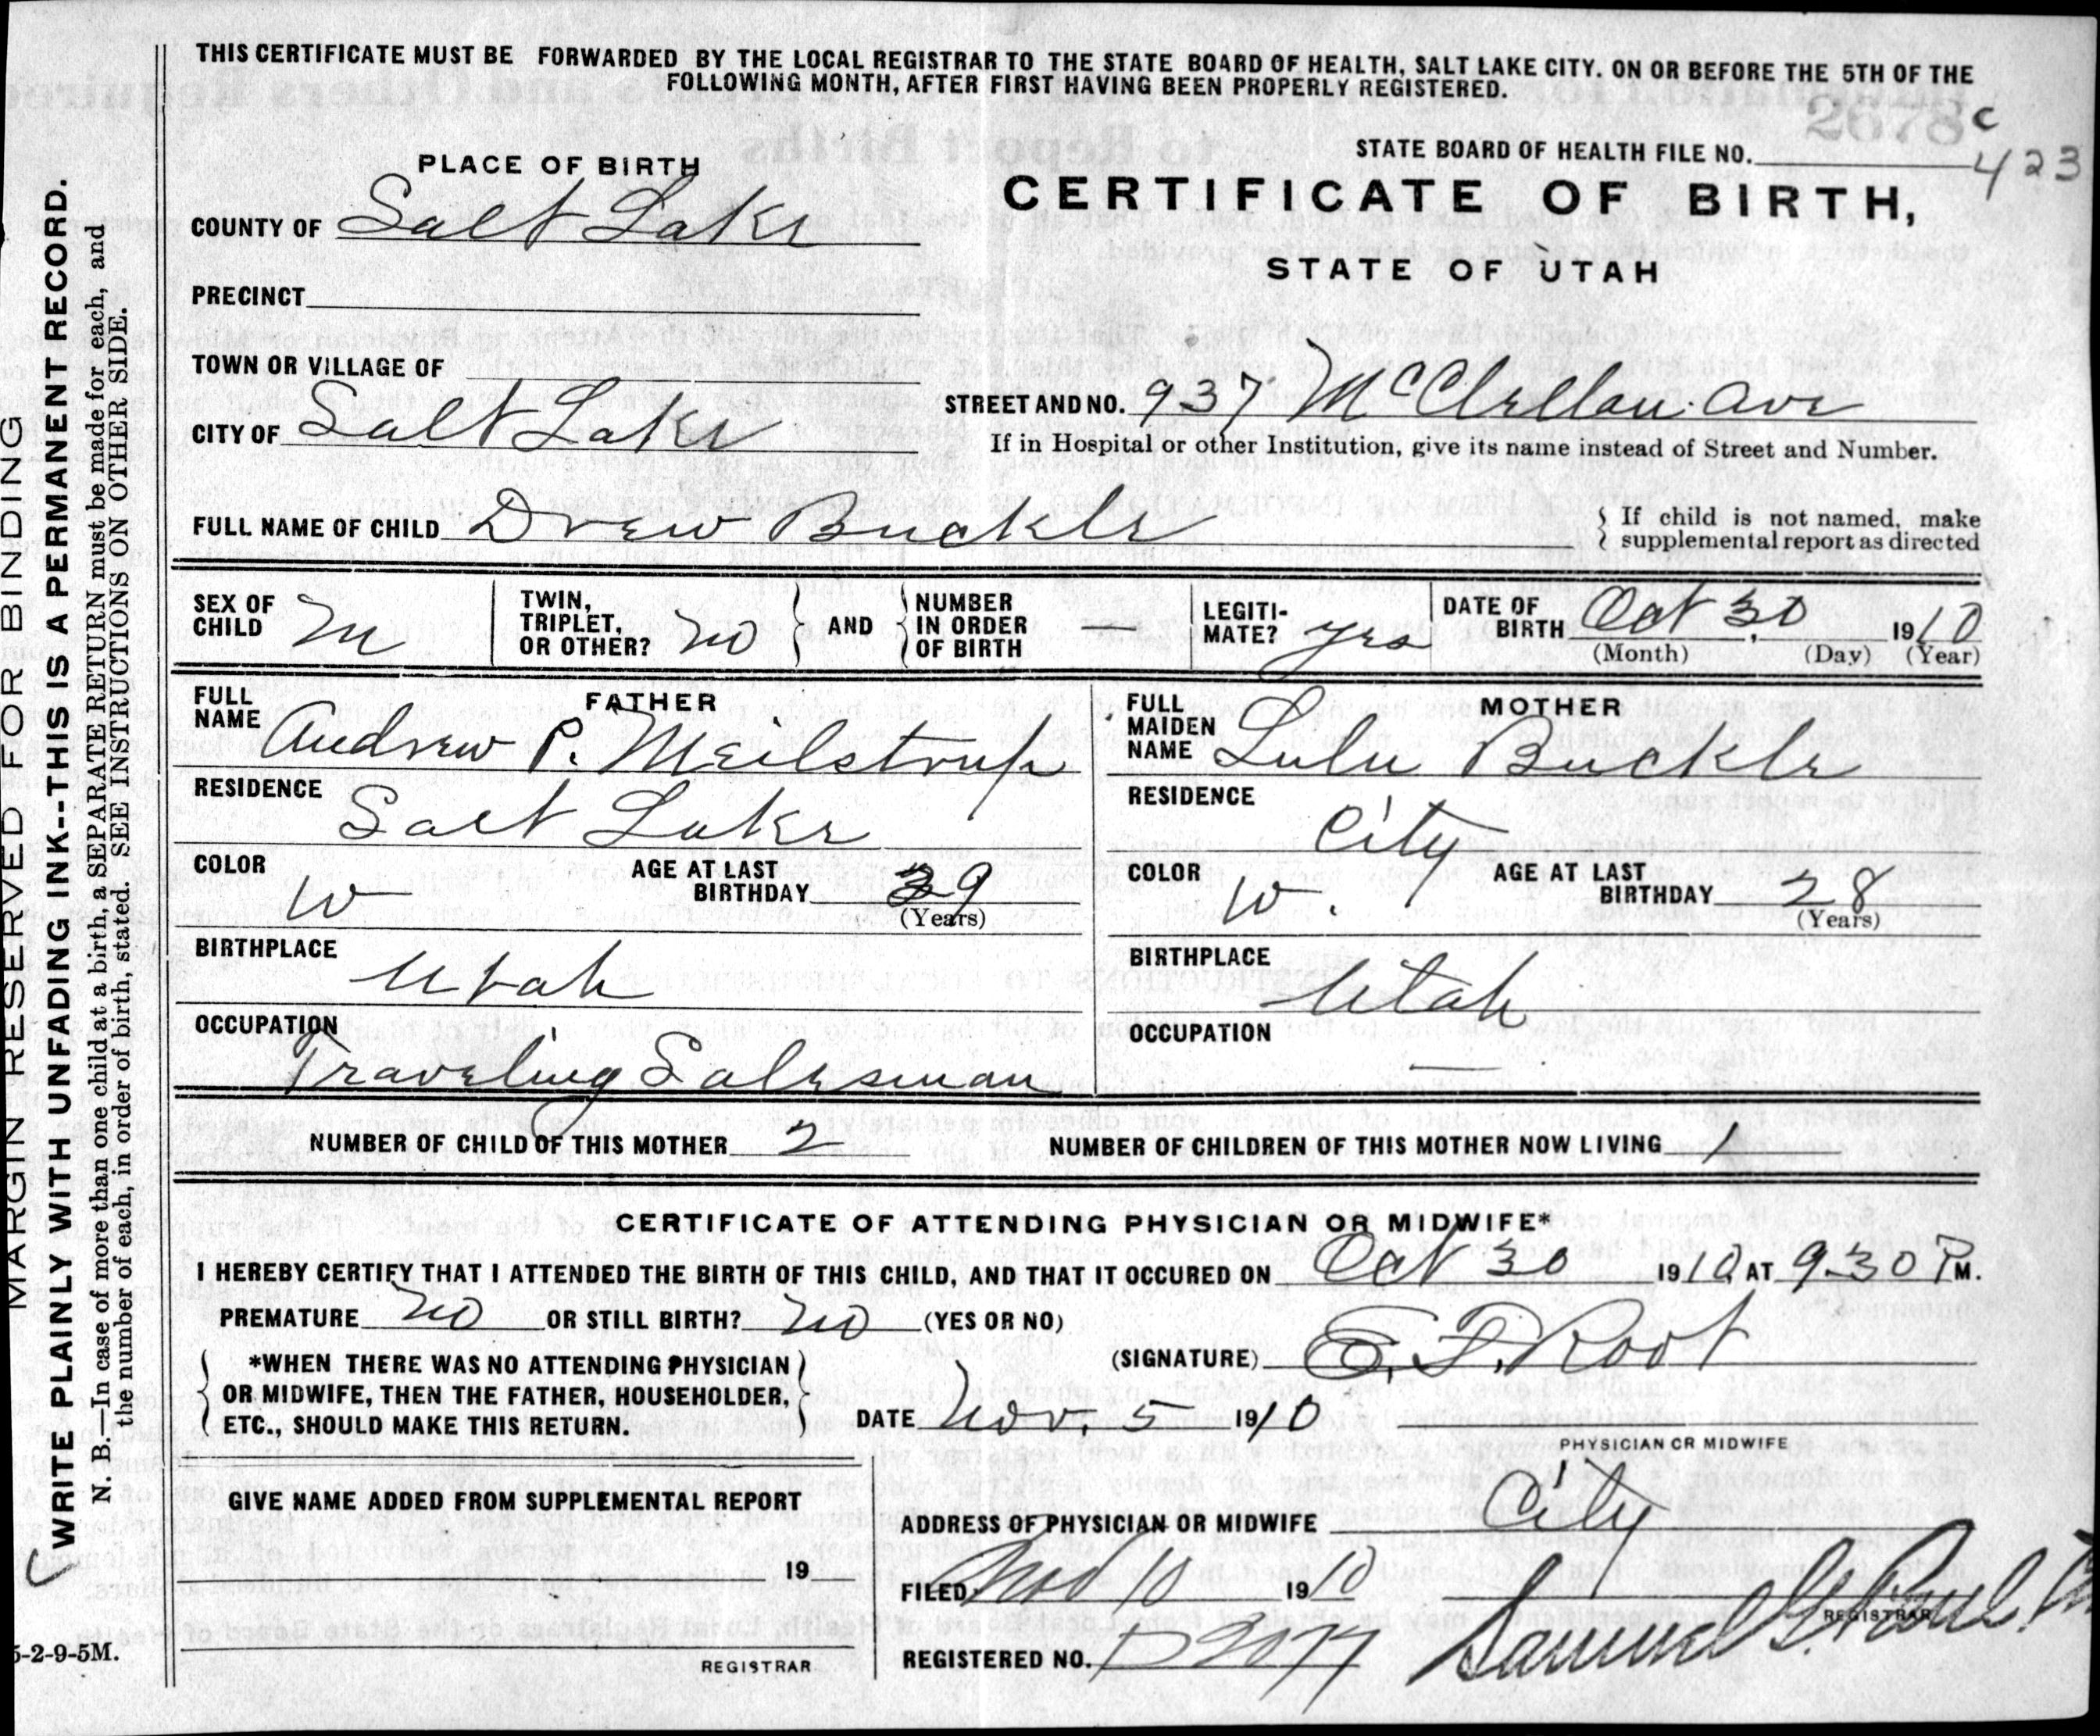 THIS CERTIFICATE MUST BE FORWARDED BY THE LOCAL REGISTRAR TO THE STATE BOARD OF HEALTH, SALT LAKE CITY. ON OR BEFORE THE 5TH OF THE
FOLLOWING MONTH, AFTER FIRST HAVING BEEN PROPERLY REGISTERED.
2678 c
423
STATE BOARD OF HEALTH FILE NO.
CERTIFICATE OF BIRTH,
STATE OF UTAH
PLACE OF BIRTH
COUNTY OF Salt Lake
PRECINCT
TOWN OR VILLAGE OF
CITY OF Salt Lake
STREET AND NO. 937 McClellan Ave
If in Hospital or other Institution, give its name instead of Street and Number.
FULL NAME OF CHILD Drew Buckle
If child is not named, make
supplemental report as directed
SEX OF CHILD M
TWIN, TRIPLET, OR OTHER? no
AND
NUMBER IN ORDER OF BIRTH —
LEGITI-MATE? yes
DATE OF BIRTH Oct 30, 1910
(Month) (Day) (Year)
FATHER
FULL NAME Andrew P. Meilstrup
RESIDENCE
Salt Lake
COLOR W
AGE AT LAST BIRTHDAY 39
(Years)
BIRTHPLACE
Utah
OCCUPATION
Traveling Salesman
MOTHER
FULL MAIDEN NAME Lulu Buckle
RESIDENCE
City
COLOR W.
AGE AT LAST BIRTHDAY 28
(Years)
BIRTHPLACE
Utah
OCCUPATION
—
NUMBER OF CHILD OF THIS MOTHER 2 NUMBER OF CHILDREN OF THIS MOTHER NOW LIVING 1
CERTIFICATE OF ATTENDING PHYSICIAN OR MIDWIFE*
I HEREBY CERTIFY THAT I ATTENDED THE BIRTH OF THIS CHILD, AND THAT IT OCCURED ON Oct 30 1910, AT 9-30 P M.
PREMATURE no OR STILL BIRTH? no (YES OR NO)
*WHEN THERE WAS NO ATTENDING PHYSICIAN
OR MIDWIFE, THEN THE FATHER, HOUSEHOLDER,
ETC., SHOULD MAKE THIS RETURN.
(SIGNATURE) E. F. Root
DATE Nov. 5 1910
PHYSICIAN OR MIDWIFE
GIVE NAME ADDED FROM SUPPLEMENTAL REPORT
19
REGISTRAR
ADDRESS OF PHYSICIAN OR MIDWIFE City
FILED Nov 10 1910
REGISTRAR
REGISTERED NO. D2077 Samuel G. Paul
MARGIN RESERVED FOR BINDING
WRITE PLAINLY WITH UNFADING INK--THIS IS A PERMANENT RECORD.
N. B.—In case of more than one child at a birth, a SEPARATE RETURN must be made for each, and
the number of each, in order of birth, stated. SEE INSTRUCTIONS ON OTHER SIDE.
5-2-9-5M.